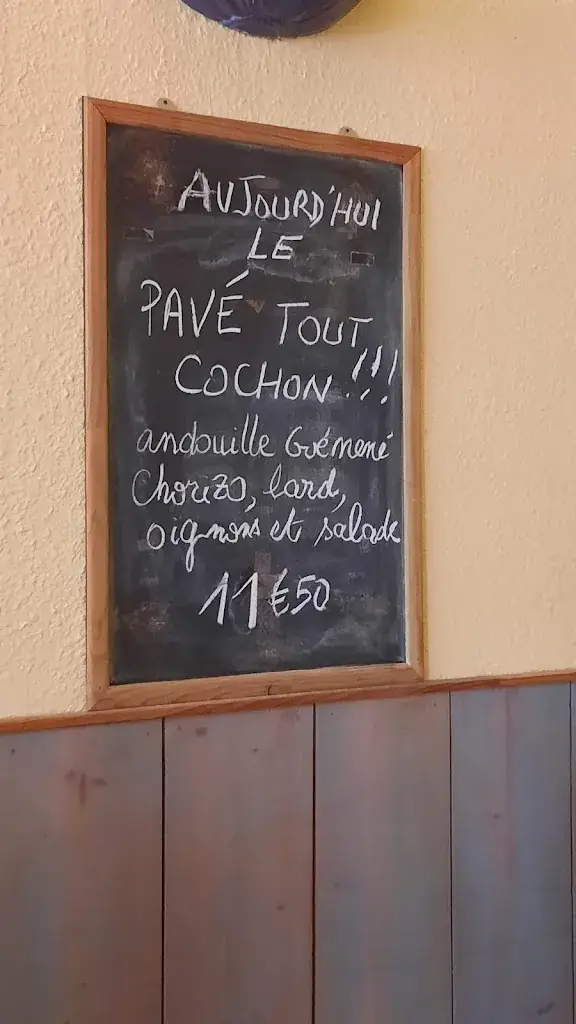 AUJOURD'HUI
LE
PAVÉ TOUT
COCHON !!!
andouille Guémené
Chorizo, lard,
oignons et salade
11€50